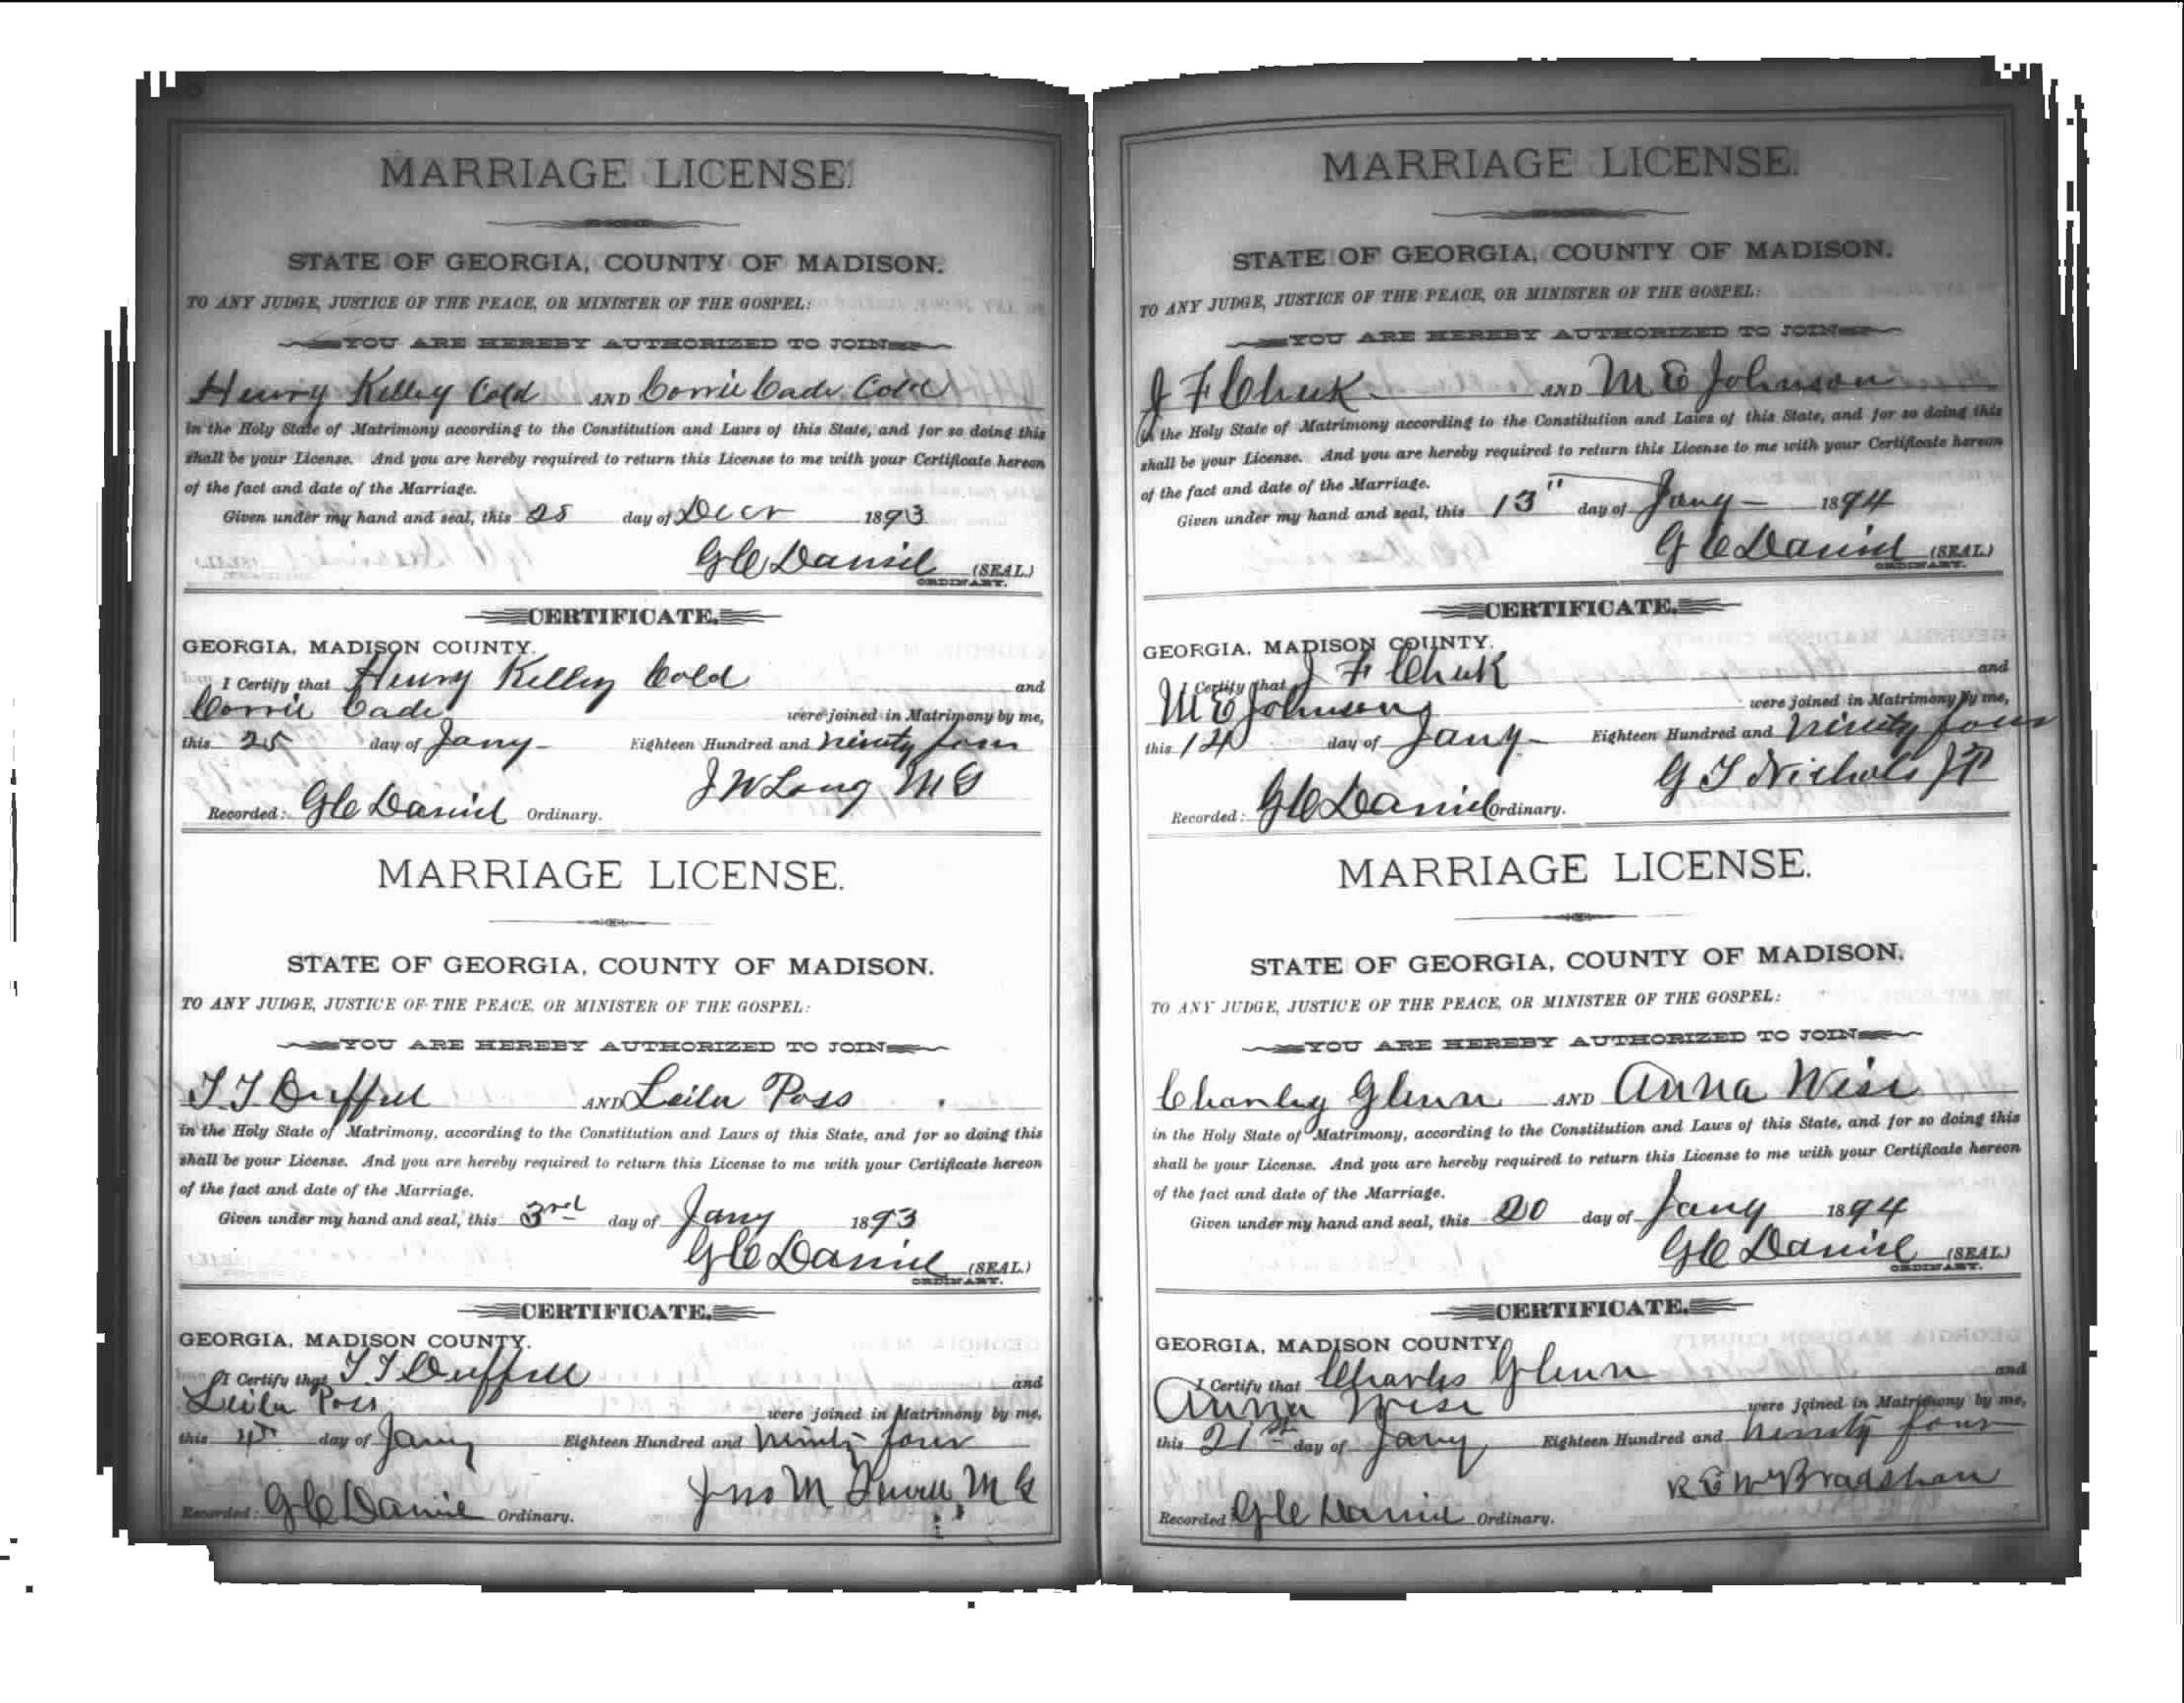 MARRIAGE LICENSE.
STATE OF GEORGIA, COUNTY OF MADISON.
TO ANY JUDGE, JUSTICE OF THE PEACE, OR MINISTER OF THE GOSPEL:
YOU ARE HEREBY AUTHORIZED TO JOIN
Henry Kelley Cold AND Corrie Cade Cold
in the Holy State of Matrimony according to the Constitution and Laws of this State, and for so doing this
shall be your License. And you are hereby required to return this License to me with your Certificate hereon
of the fact and date of the Marriage.
Given under my hand and seal, this 25 day of Decr 1893
G C Daniel (SEAL)
ORDINARY.
CERTIFICATE.
GEORGIA, MADISON COUNTY.
I Certify that Henry Kelley Cold and
Corrie Cade were joined in Matrimony by me,
this 25 day of Jany Eighteen Hundred and ninety four
J W Long M G
Recorded: G C Daniel Ordinary.
MARRIAGE LICENSE.
STATE OF GEORGIA, COUNTY OF MADISON.
TO ANY JUDGE, JUSTICE OF THE PEACE, OR MINISTER OF THE GOSPEL:
YOU ARE HEREBY AUTHORIZED TO JOIN
T T Duffel AND Leila Poss
in the Holy State of Matrimony, according to the Constitution and Laws of this State, and for so doing this
shall be your License. And you are hereby required to return this License to me with your Certificate hereon
of the fact and date of the Marriage.
Given under my hand and seal, this 3rd day of Jany 1893
G C Daniel (SEAL)
ORDINARY.
CERTIFICATE.
GEORGIA, MADISON COUNTY.
I Certify that T T Duffell and
Leila Poss were joined in Matrimony by me,
this 4th day of Jany Eighteen Hundred and ninety four
Jno M M G
Recorded: G C Daniel Ordinary.
MARRIAGE LICENSE.
STATE OF GEORGIA, COUNTY OF MADISON.
TO ANY JUDGE, JUSTICE OF THE PEACE, OR MINISTER OF THE GOSPEL:
YOU ARE HEREBY AUTHORIZED TO JOIN
J F Cheek AND M E Johnson
in the Holy State of Matrimony according to the Constitution and Laws of this State, and for so doing this
shall be your License. And you are hereby required to return this License to me with your Certificate hereon
of the fact and date of the Marriage.
Given under my hand and seal, this 13" day of Jany 1894
G C Daniel (SEAL)
ORDINARY.
CERTIFICATE.
GEORGIA, MADISON COUNTY.
I Certify that J F Cheek and
M E Johnson were joined in Matrimony by me,
this 14 day of Jany Eighteen Hundred and ninety four
G T Nichols J P
Recorded: G C Daniel Ordinary.
MARRIAGE LICENSE.
STATE OF GEORGIA, COUNTY OF MADISON.
TO ANY JUDGE, JUSTICE OF THE PEACE, OR MINISTER OF THE GOSPEL:
YOU ARE HEREBY AUTHORIZED TO JOIN
Charley Glenn AND Anna Wise
in the Holy State of Matrimony, according to the Constitution and Laws of this State, and for so doing this
shall be your License. And you are hereby required to return this License to me with your Certificate hereon
of the fact and date of the Marriage.
Given under my hand and seal, this 20 day of Jany 1894
G C Daniel (SEAL)
ORDINARY.
CERTIFICATE.
GEORGIA, MADISON COUNTY.
I Certify that Charles Glenn and
Anna Wise were joined in Matrimony by me,
this 21st day of Jany Eighteen Hundred and ninety four
R E W Bradshaw
Recorded: G C Daniel Ordinary.